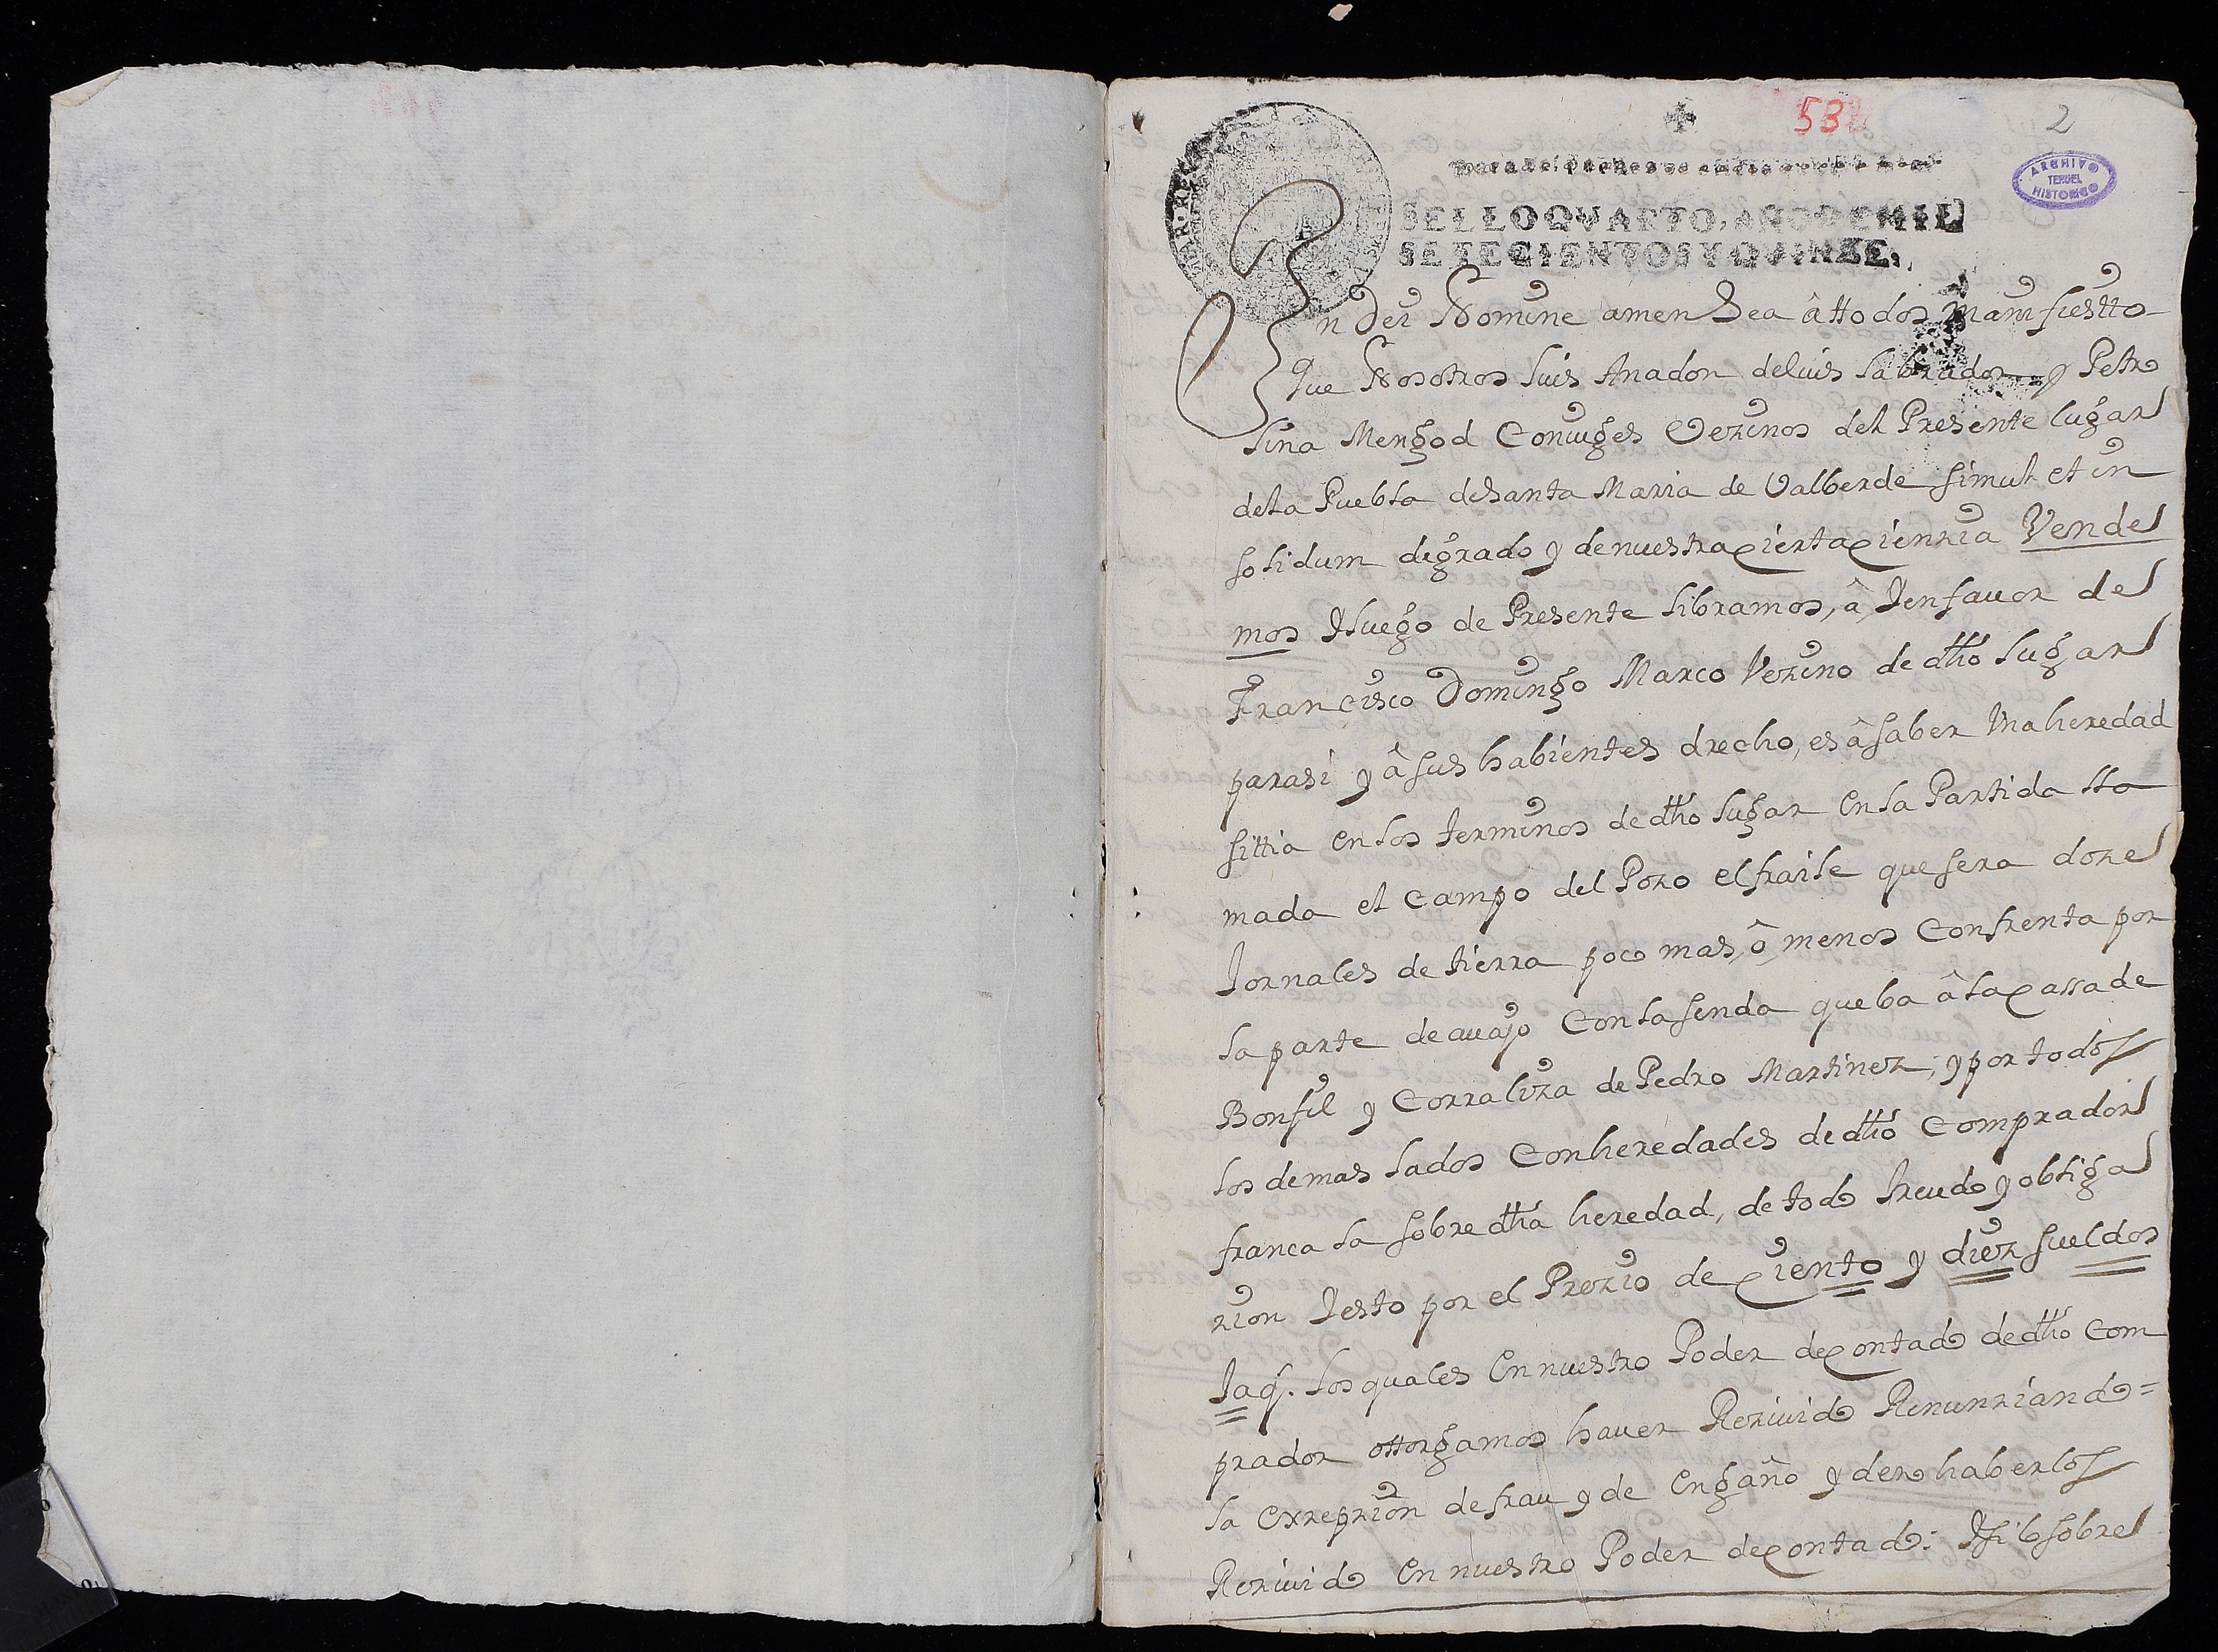 53
2
ARCHIVO
TERUEL
HISTORICO
SELLO QVARTO, AÑO DE MIL
SETECIENTOS Y QVINZE.
In Dei Nomine amen Sea â ttodos manifiestto
que Nosotros Luis Anadon de luis labrador y Petro
lina Mengod Coniuges Vezinos del Presente lugar
de la Puebla de Santa Maria de Valberde simul et in
solidum de grado y de nuestra zierta zienzia Vende
mos Y luego de Presente libramos, â, Y en fauor de
Francisco Domingo Marco Vezino de dho lugar
para si y â sus habientes drecho, es â saber Vna heredad
sittia en los terminos de dho lugar en la Partida lla
mada el campo del Pozo el fraile que sera doze
Jornales de tierra poco mas, ô, menos Confrenta por
la parte de auajo Con la senda que ba â la cassa de
Bonfil y Corraliza de Pedro Martinez, y por todos
los demas lados Con heredades de dho Comprador
franca la sobre dha heredad, de todo treudo y obliga
zion Y esto por el Prezio de ziento y diez sueldos
Jaq.s los quales En nuestro Poder de contado de dho Com
prador ottorgamos hauer Reziuido Renunziando=
la exzepzion de frau y de Engaño y de no haberlos
Reziuido En nuestro Poder de contado: Y si sobre